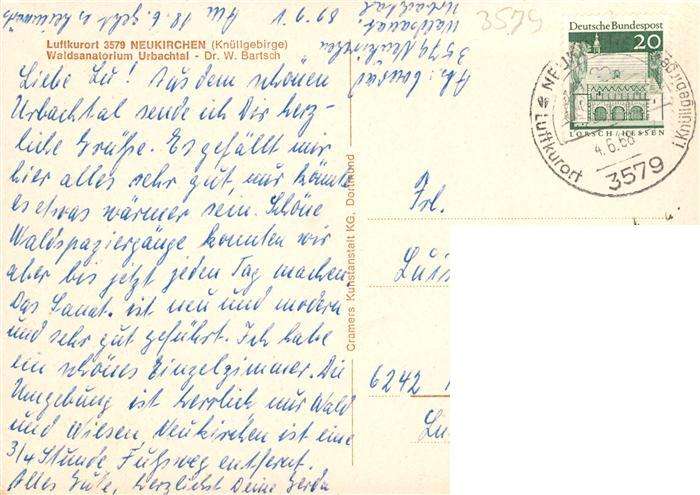 Luftkurort 3579 NEUKIRCHEN (Knüllgebirge)
Waldsanatorium Urbachtal - Dr. W. Bartsch
Liebe Lu! Aus dem schönen
Urbachtal sende ich Dir herz-
liche Grüße. Es gefällt mir
hier alles sehr gut, nur könnte
es etwas wärmer sein. Schöne
Waldspaziergänge konnten wir
aber bis jetzt jeden Tag machen.
Das Sanat. ist neu und modern
und sehr gut geführt. Ich habe
ein schönes Einzelzimmer. Die
Umgebung ist herrlich nur Wald
und Wiesen, Neukirchen ist eine
3/4 Stunde Fußweg entfernt.
Alles Gute, herzlichst Deine Gerda
Am 18.6. geht es heimwärts
3579 Neukirchen
Waldsanat.
Urbachtal
Cramers Kunstanstalt KG, Dortmund
3579
Deutsche Bundespost
20
LORSCH/HESSEN
Luftkurort
4.6.68
3579
i.Knüllgebirge
Frl.
6242